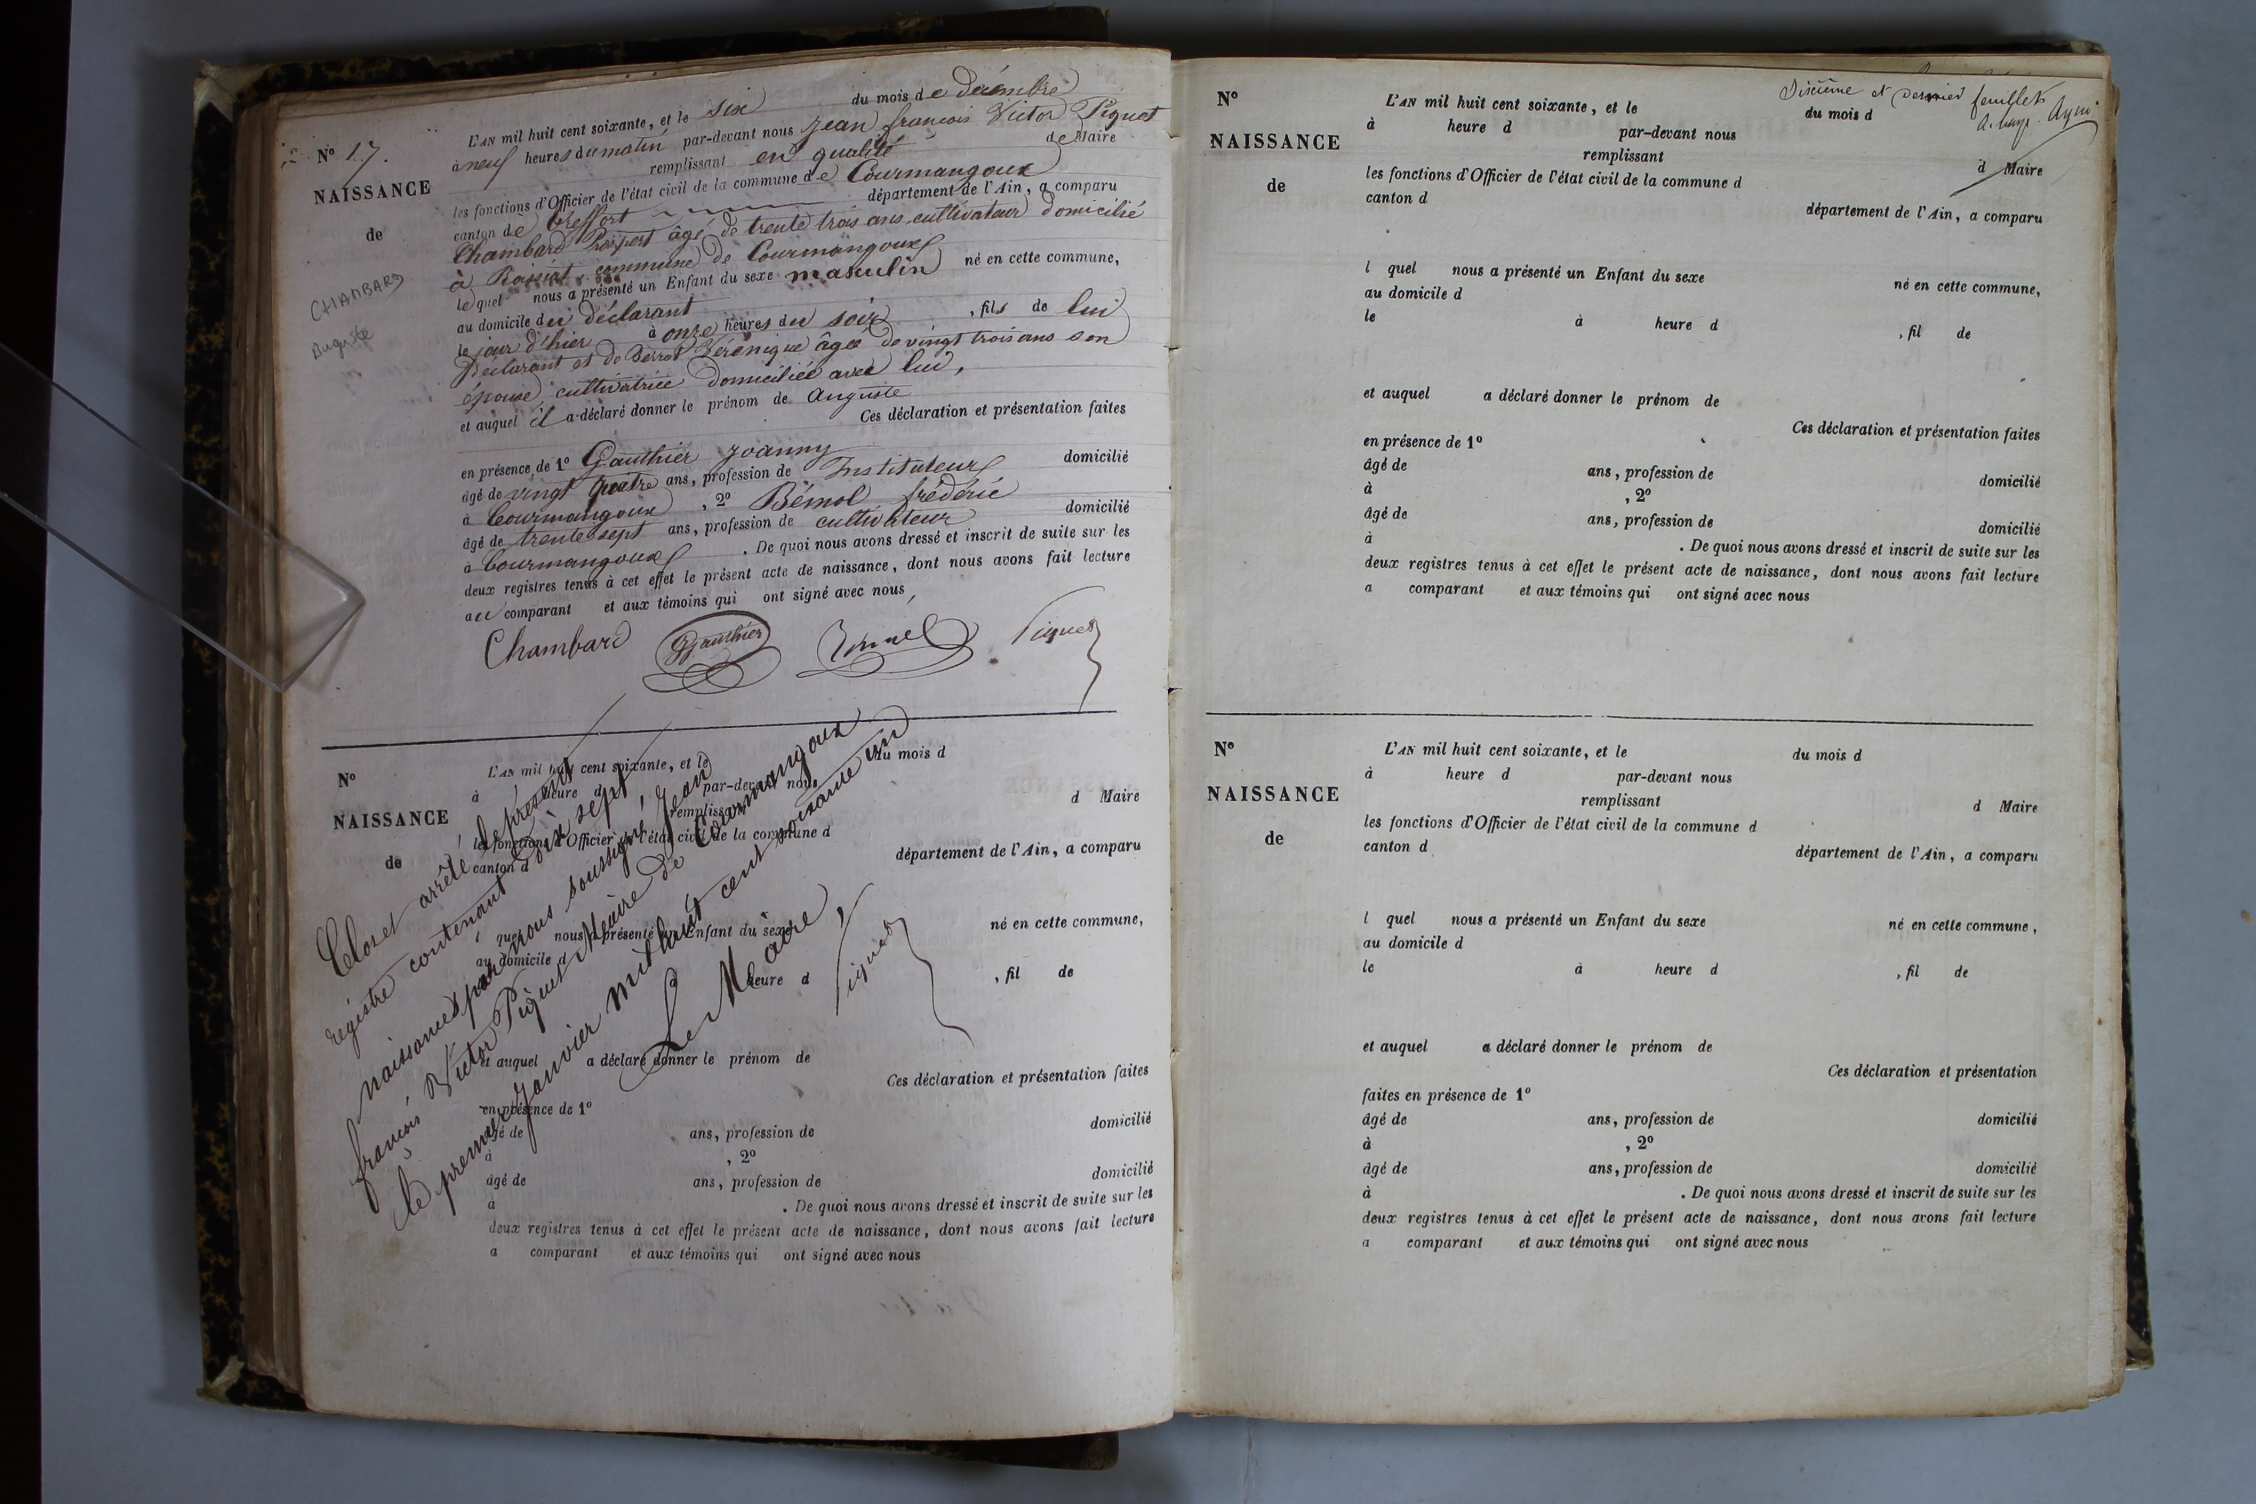 N° 17.
NAISSANCE
de
CHAMBARD
Auguste
L'AN mil huit cent soixante, et le six du mois de décembre
à neuf heures du matin par-devant nous Jean françois Victor Piquet
remplissant en qualité de Maire
les fonctions d'Officier de l'état civil de la commune de Courmangoux
canton de Treffort département de l'Ain, a comparu
Chambard Prosper âgé de trente trois ans cultivateur domicilié
à Roissiat commune de Courmangoux
lequel nous a présenté un Enfant du sexe masculin né en cette commune,
au domicile du déclarant
le jour d'hier à onze heures du soir, fils de lui
Déclarant et de Véronique âgée de vingt trois ans son
épouse, cultivatrice domiciliée avec lui,
et auquel il a déclaré donner le prénom de Auguste
Ces déclaration et présentation faites
en présence de 1° Gauthier Joanny
âgé de vingt quatre ans, profession de Instituteur domicilié
à Courmangoux, 2° Bémol frédéric
âgé de trente sept ans, profession de cultivateur domicilié
à Courmangoux. De quoi nous avons dressé et inscrit de suite sur les
deux registres tenus à cet effet le présent acte de naissance, dont nous avons fait lecture
au comparant et aux témoins qui ont signé avec nous,
Chambard Gauthier Piquet
N°
NAISSANCE
de
L'AN mil huit cent soixante, et le du mois d
à heure d par-devant nous
remplissant d Maire
les fonctions d'Officier de l'état civil de la commune d
canton d département de l'Ain, a comparu
l quel nous a présenté un Enfant du sexe né en cette commune,
au domicile d
à heure d, fil de
et auquel a déclaré donner le prénom de
Ces déclaration et présentation faites
en présence de 1°
âgé de ans, profession de domicilié
à, 2°
âgé de ans, profession de domicilié
à. De quoi nous avons dressé et inscrit de suite sur les
deux registres tenus à cet effet le présent acte de naissance, dont nous avons fait lecture
a comparant et aux témoins qui ont signé avec nous
Clos et arrêté le présent
régistre contenant dix sept
naissances par nous soussigné, Jean
françois Victor Piquet Maire de Courmangoux
le premier Janvier mil huit cent soixante un
Le Maire,
Piquet
Dixième et dernier feuillet
N°
NAISSANCE
de
L'AN mil huit cent soixante, et le du mois d
à heure d par-devant nous
remplissant d Maire
les fonctions d'Officier de l'état civil de la commune d
canton d département de l'Ain, a comparu
l quel nous a présenté un Enfant du sexe né en cette commune,
au domicile d
le à heure d, fil de
et auquel a déclaré donner le prénom de
Ces déclaration et présentation faites
en présence de 1°
âgé de ans, profession de domicilié
à, 2°
âgé de ans, profession de domicilié
à. De quoi nous avons dressé et inscrit de suite sur les
deux registres tenus à cet effet le présent acte de naissance, dont nous avons fait lecture
a comparant et aux témoins qui ont signé avec nous
N°
NAISSANCE
de
L'AN mil huit cent soixante, et le du mois d
à heure d par-devant nous
remplissant d Maire
les fonctions d'Officier de l'état civil de la commune d
canton d département de l'Ain, a comparu
l quel nous a présenté un Enfant du sexe né en cette commune,
au domicile d
le à heure d, fil de
et auquel a déclaré donner le prénom de
Ces déclaration et présentation
faites en présence de 1°
âgé de ans, profession de domicilié
à, 2°
âgé de ans, profession de domicilié
à. De quoi nous avons dressé et inscrit de suite sur les
deux registres tenus à cet effet le présent acte de naissance, dont nous avons fait lecture
a comparant et aux témoins qui ont signé avec nous